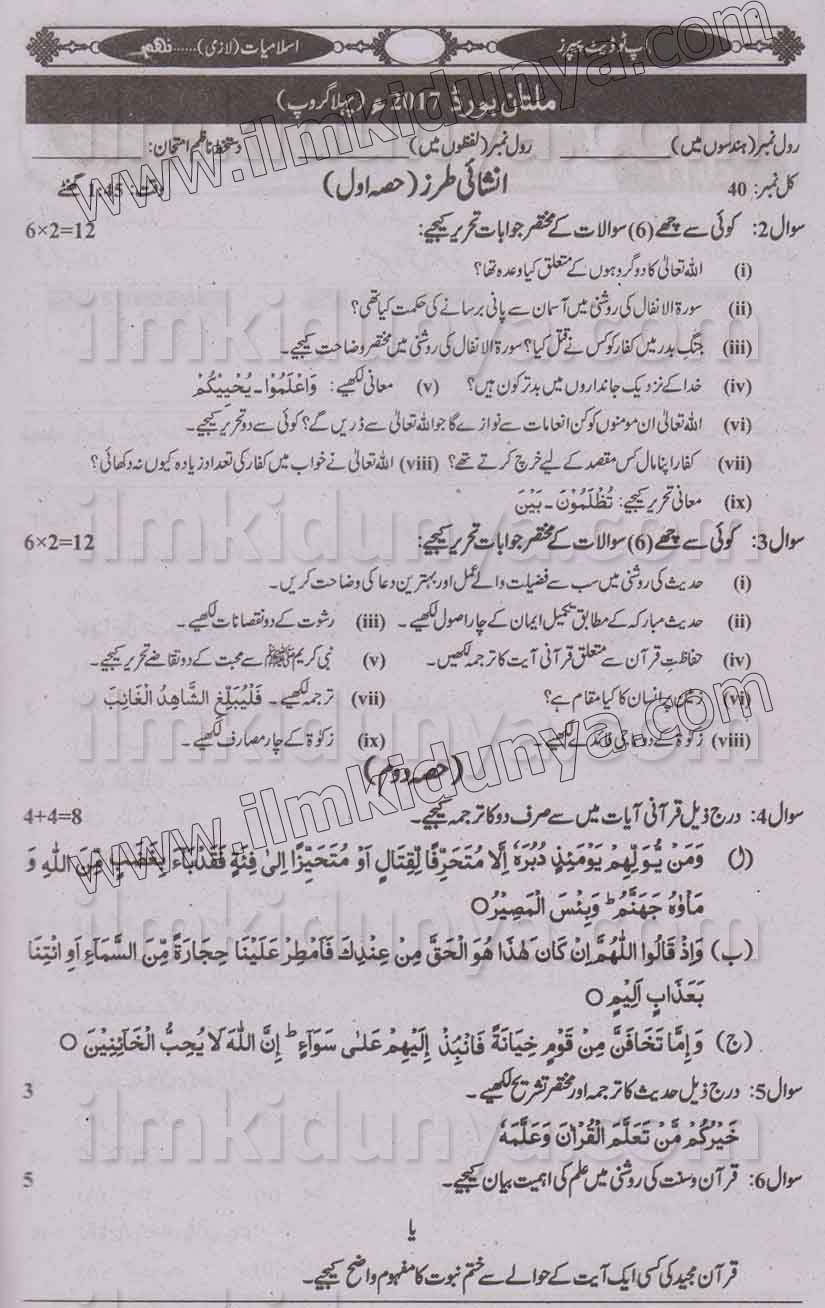 اسلامیات (لازمی)......نہم
اپ ٹو ڈیٹ پیپرز
ملتان بورڈ 2017ء (پہلا گروپ)
رول نمبر (ہندسوں میں) ____________ رول نمبر (لفظوں میں) ____________ دستخط ناظم امتحان: ____________
کل نمبر: 40 انشائی طرز (حصہ اول) وقت: 1:45 گھنٹے
سوال 2: کوئی سے چھے (6) سوالات کے مختصر جوابات تحریر کیجیے: 6×2=12
(i) اللہ تعالیٰ کا دو گروہوں کے متعلق کیا وعدہ تھا؟
(ii) سورۃ الانفال کی روشنی میں آسمان سے پانی برسانے کی حکمت کیا تھی؟
(iii) جنگِ بدر میں کفار کو کس نے قتل کیا؟ سورۃ الانفال کی روشنی میں مختصر وضاحت کیجیے۔
(iv) خدا کے نزدیک جانداروں میں بدتر کون ہیں؟ (v) معانی لکھیے: وَاعْلَمُوْا۔ یُحْیِیْکُمْ
(vi) اللہ تعالیٰ ان مومنوں کو کن انعامات سے نوازے گا جو اللہ تعالیٰ سے ڈریں گے؟ کوئی سے دو تحریر کیجیے۔
(vii) کفار اپنا مال کس مقصد کے لیے خرچ کرتے تھے؟ (viii) اللہ تعالیٰ نے خواب میں کفار کی تعداد زیادہ کیوں نہ دکھائی؟
(ix) معانی تحریر کیجیے: تُظْلَمُوْنَ۔ بَیْنَ
سوال 3: کوئی سے چھے (6) سوالات کے مختصر جوابات تحریر کیجیے: 6×2=12
(i) حدیث کی روشنی میں سب سے فضیلت والے عمل اور بہترین دعا کی وضاحت کریں۔
(ii) حدیث مبارکہ کے مطابق تکمیل ایمان کے چار اصول لکھیے۔ (iii) رشوت کے دو نقصانات لکھیے۔
(iv) حفاظتِ قرآن سے متعلق قرآنی آیت کا ترجمہ لکھیں۔ (v) نبی کریم ﷺ سے محبت کے دو تقاضے تحریر کیجیے۔
(vi) زمین پر انسان کا کیا مقام ہے؟ (vii) ترجمہ لکھیے۔ فَلْیُبَلِّغِ الشَّاهِدُ الْغَائِبَ
(viii) زکوٰۃ کے دو سماجی فائدے لکھیے۔ (ix) زکوٰۃ کے چار مصارف لکھیے۔
(حصہ دوم)
سوال 4: درج ذیل قرآنی آیات میں سے صرف دو کا ترجمہ کیجیے۔ 4+4=8
(ا) وَمَنْ یُّوَلِّهِمْ یَوْمَئِذٍ دُبُرَهٗ اِلَّا مُتَحَرِّفًا لِّقِتَالٍ اَوْ مُتَحَیِّزًا اِلٰی فِئَةٍ فَقَدْ بَآءَ بِغَضَبٍ مِّنَ اللّٰهِ وَ
مَاْوٰهُ جَهَنَّمُ ؕ وَبِئْسَ الْمَصِیْرُ ○
(ب) وَاِذْ قَالُوا اللّٰهُمَّ اِنْ کَانَ هٰذَا هُوَ الْحَقَّ مِنْ عِنْدِكَ فَاَمْطِرْ عَلَیْنَا حِجَارَةً مِّنَ السَّمَآءِ اَوِ ائْتِنَا
بِعَذَابٍ اَلِیْمٍ ○
(ج) وَاِمَّا تَخَافَنَّ مِنْ قَوْمٍ خِیَانَةً فَانْۢبِذْ اِلَیْهِمْ عَلٰی سَوَآءٍ ؕ اِنَّ اللّٰهَ لَا یُحِبُّ الْخَآئِنِیْنَ ○
سوال 5: درج ذیل حدیث کا ترجمہ اور مختصر تشریح لکھیے۔ 3
خَیْرُکُمْ مَّنْ تَعَلَّمَ الْقُرْاٰنَ وَعَلَّمَهٗ
سوال 6: قرآن وسنت کی روشنی میں علم کی اہمیت بیان کیجیے۔ 5
یا
قرآن مجید کی کسی ایک آیت کے حوالے سے ختم نبوت کا مفہوم واضح کیجیے۔
www.ilmkidunya.com
www.ilmkidunya.com
ilmkidunya.com
ilmkidunya.com
ilmkidunya.com
ilmkidunya.com
ilmkidunya.com